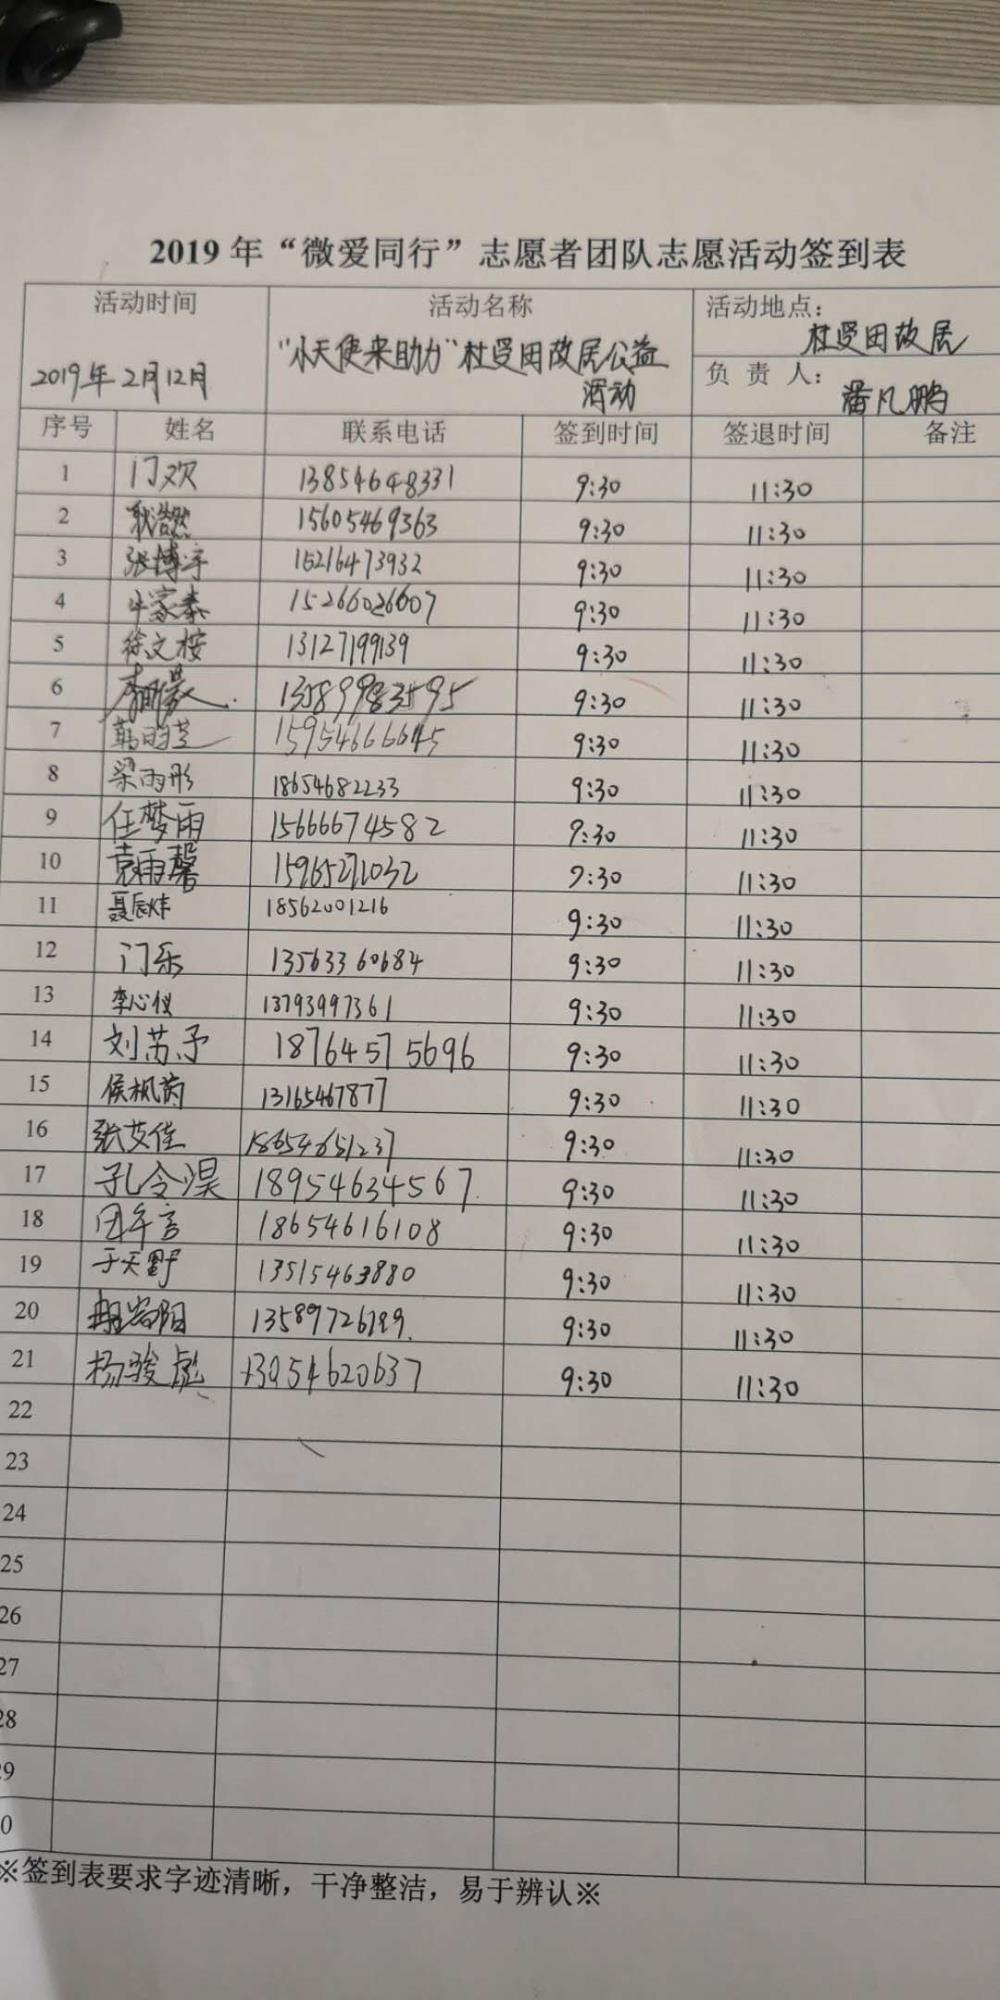 2019 年“微爱同行”志愿者团队志愿活动签到表
活动时间 活动名称 活动地点：
2019年2月12日 “小天使来助力”杜受田故居公益活动 杜受田故居
负 责 人： 潘凡鹏
序号 姓名 联系电话 签到时间 签退时间 备注
1 门欢 13854648331 9:30 11:30
2 耿浩然 15605469363 9:30 11:30
3 张博宇 15216473932 9:30 11:30
4 牛家泰 15266026607 9:30 11:30
5 徐文桉 13127199139 9:30 11:30
6 13589983595 9:30 11:30
7 韩昀芝 15954666645 9:30 11:30
8 梁雨彤 18654682233 9:30 11:30
9 任梦雨 15666674582 9:30 11:30
10 袁雨馨 15965271032 9:30 11:30
11 聂辰炜 18562001216 9:30 11:30
12 门乐 13563360684 9:30 11:30
13 李心仪 13793997361 9:30 11:30
14 刘芳予 18764575696 9:30 11:30
15 侯枫茵 13165467877 9:30 11:30
16 张艾佳 18654651237 9:30 11:30
17 孔令淏 18954634567 9:30 11:30
18 18654616108 9:30 11:30
19 于天野 13515463880 9:30 11:30
20 13589726199 9:30 11:30
21 杨骏彪 13954620637 9:30 11:30
22
23
24
25
26
27
28
29
30
※签到表要求字迹清晰，干净整洁，易于辨认※